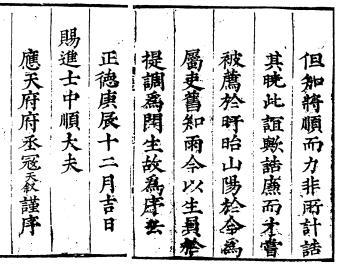 但知將順而力非所計誥
其曉此誼歟誥廉而才嘗
被薦於盱眙山陽於今爲
屬吏舊知雨今以生員於
提調爲門生故爲序云
正德庚辰十二月吉日
賜進士中順大夫
應天府府丞冦天敘謹序